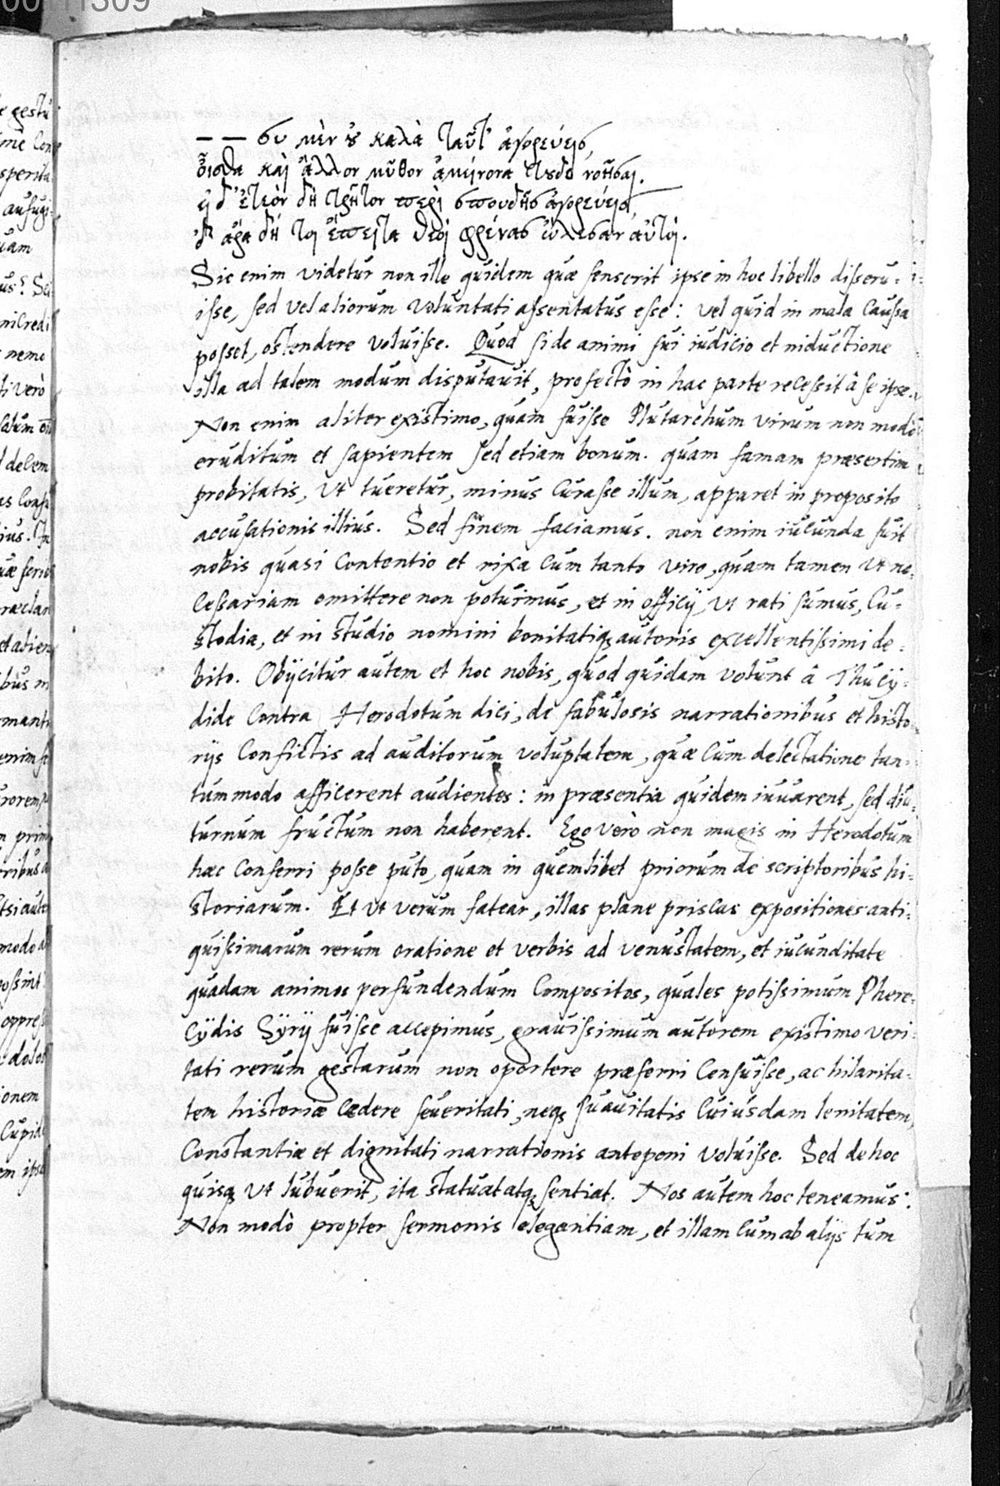 — — σὺ μὲν ὀ καλὰ ταῦτ' ἀγορεύεις,
οἶσθα καὶ ἄλλον μῦθον ἀμείνονα τοῦδε νοῆσαι.
εἰ δ' ἐτεὸν δὴ τοῦτον ἀπὸ σπουδῆς ἀγορεύεις,
ἐξ ἄρα δή τοι ἔπειτα θεοὶ φρένας ὤλεσαν αὐτοί.
Sic enim videtur non ille quidem quæ senserit ipse in hoc libello disseru-
isse, sed vel aliorum voluntati assentatus esse: vel quid in mala causa
posset, ostendere voluisse. Quod si de animi sui iudicio et inductione
illa ad talem modum disputauit, profectò in hac parte recessit â se ipse.
Non enim aliter existimo, quam fuisse Plutarchum virum non modò
eruditum et sapientem sed etiam bonum. quam famam præsertim
probitatis, vt tueretur, minus curasse illum, apparet in proposito
accusationis illius. Sed finem faciamus. non enim iucunda fuit
nobis quasi contentio et rixa cum tanto viro, quam tamen vt ne-
cessariam omittere non potuimus, et in officij, vt rati sumus, cu-
stodia, et in studio nomini bonitatiq; autoris excellentissimi de-
bito. Obijcitur autem et hoc nobis, quod quidam volunt â Thucy-
dide contra Herodotum dici, de fabulosis narrationibus et histo
rijs confictis ad auditorum voluptatem, quæ cum delectatione tan-
tummodo afficerent audientes: in præsentia quidem iuuarent, sed diu-
turnum fructum non haberent. Ego verò non magis in Herodotum
hæc conferri posse puto, quam in quemlibet priorum de scriptoribus hi-
storiarum. Et vt verum fatear, illas plane priscas expositiones anti-
quissimarum rerum oratione et verbis ad venustatem, et iucunditate
quadam animos perfundendum compositas, quales potissimum Phere-
cydis Syrij fuisse accepimus, grauissimum autorem existimo veri-
tati rerum gestarum non oportere præferri censuisse, ac hilarita-
tem historiæ cædere seueritati, neq; suauitatis cuiusdam lenitatem,
Constantiæ et dignitati narrationis anteponi voluisse. Sed de hoc
quisq; vt lubuerit, ita statuat atq; sentiat. Nos autem hoc teneamus:
Non modò propter sermonis elegantiam, et illam cum ab alijs tum